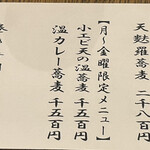 天麩羅蕎麦 二千八百円
【月〜金曜限定メニュー】
小エビ天の温蕎麦 千五百円
温カレー蕎麦 千五百円